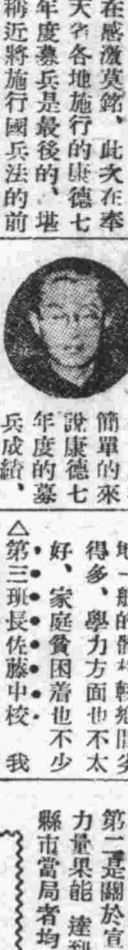 在感激莫銘、此次在奉
天省各地施行的康德七
年度募兵是最後的、堪
稱近將施行國兵法的前
簡單的來
說康德七
年度的募
兵成績、
得多、學力方面也不太
好、家庭貧困着也不少
△第三班長佐藤中校 我
第二是關於宣
力量果能 達到
縣市當局者均